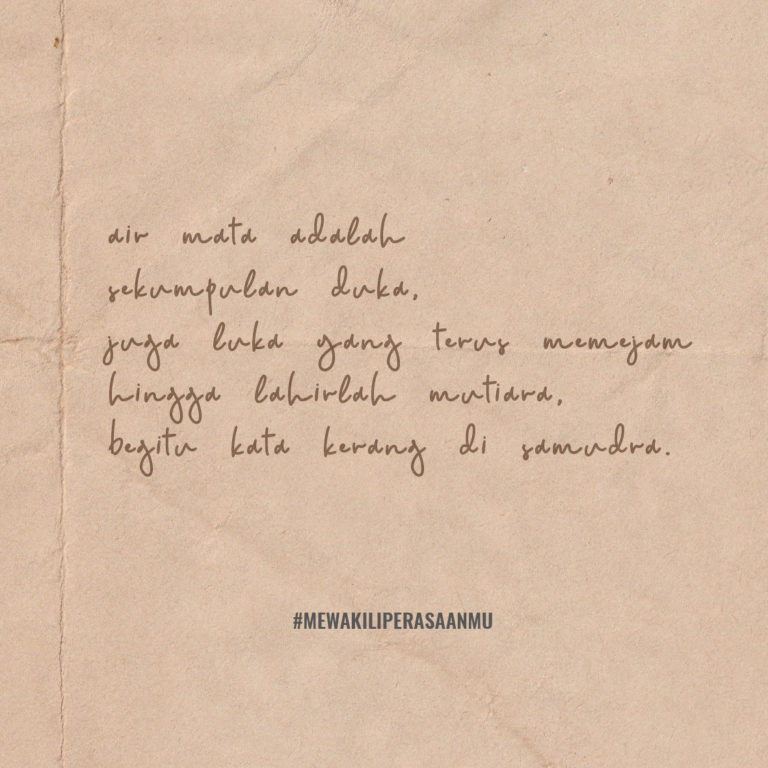 air mata adalah
sekumpulan duka,
juga luka yang terus memejam
hingga lahirlah mutiara,
begitu kata kerang di samudra.
#MEWAKILIPERASAANMU